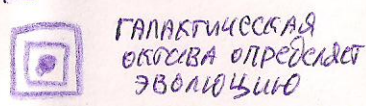 ГАЛАКТИЧЕСКАЯ
ОКТАВА ОПРЕДЕЛЯЕТ
ЭВОЛЮЦИЮ